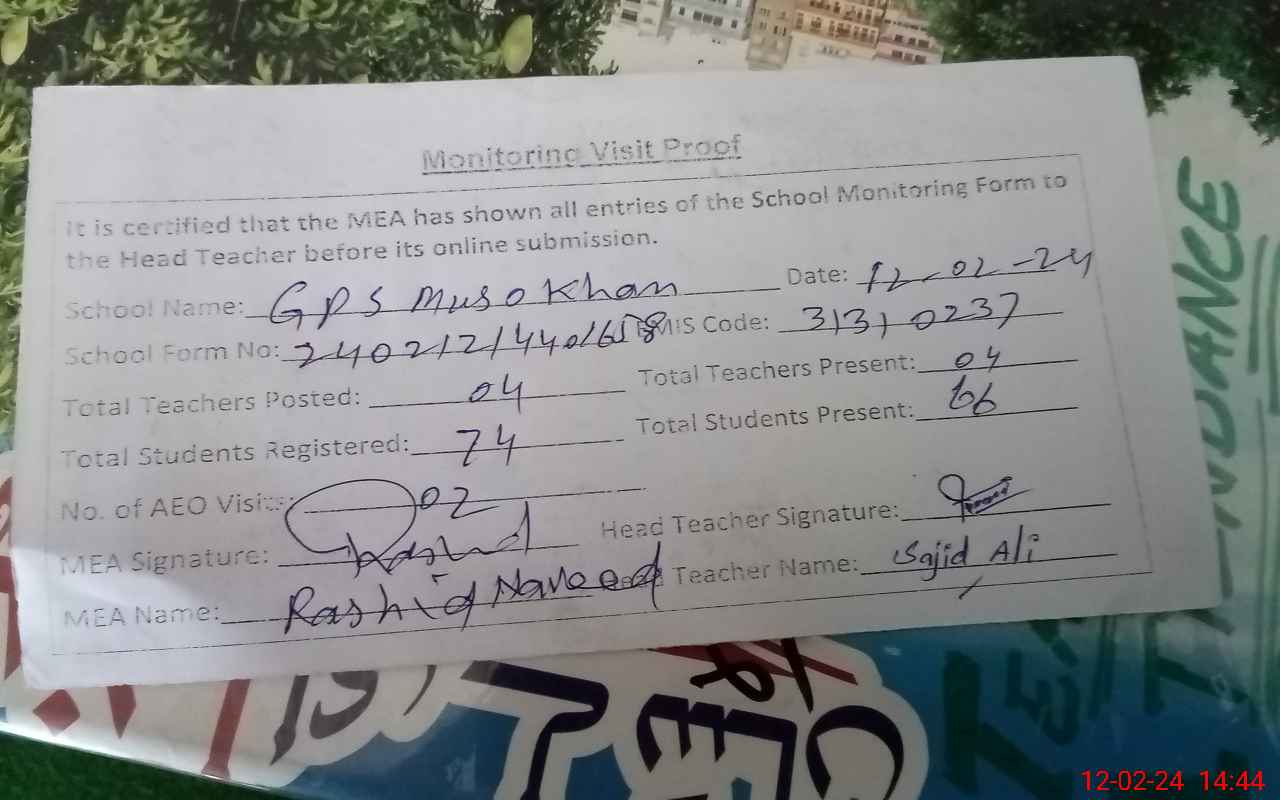 Monitoring Visit Proof
It is certified that the MEA has shown all entries of the School Monitoring Form to
the Head Teacher before its online submission.
School Name: GPS Muso Khan Date: 12-02-24
School Form No: EMIS Code: 31310237
Total Teachers Posted: 04 Total Teachers Present: 04
Total Students Registered: 74 Total Students Present: 66
No. of AEO Visits: 02
MEA Signature: Rashid Head Teacher Signature:
MEA Name: Rashid Naveed Head Teacher Name: Sajid Ali
TENDANCE
12-02-24 14:44